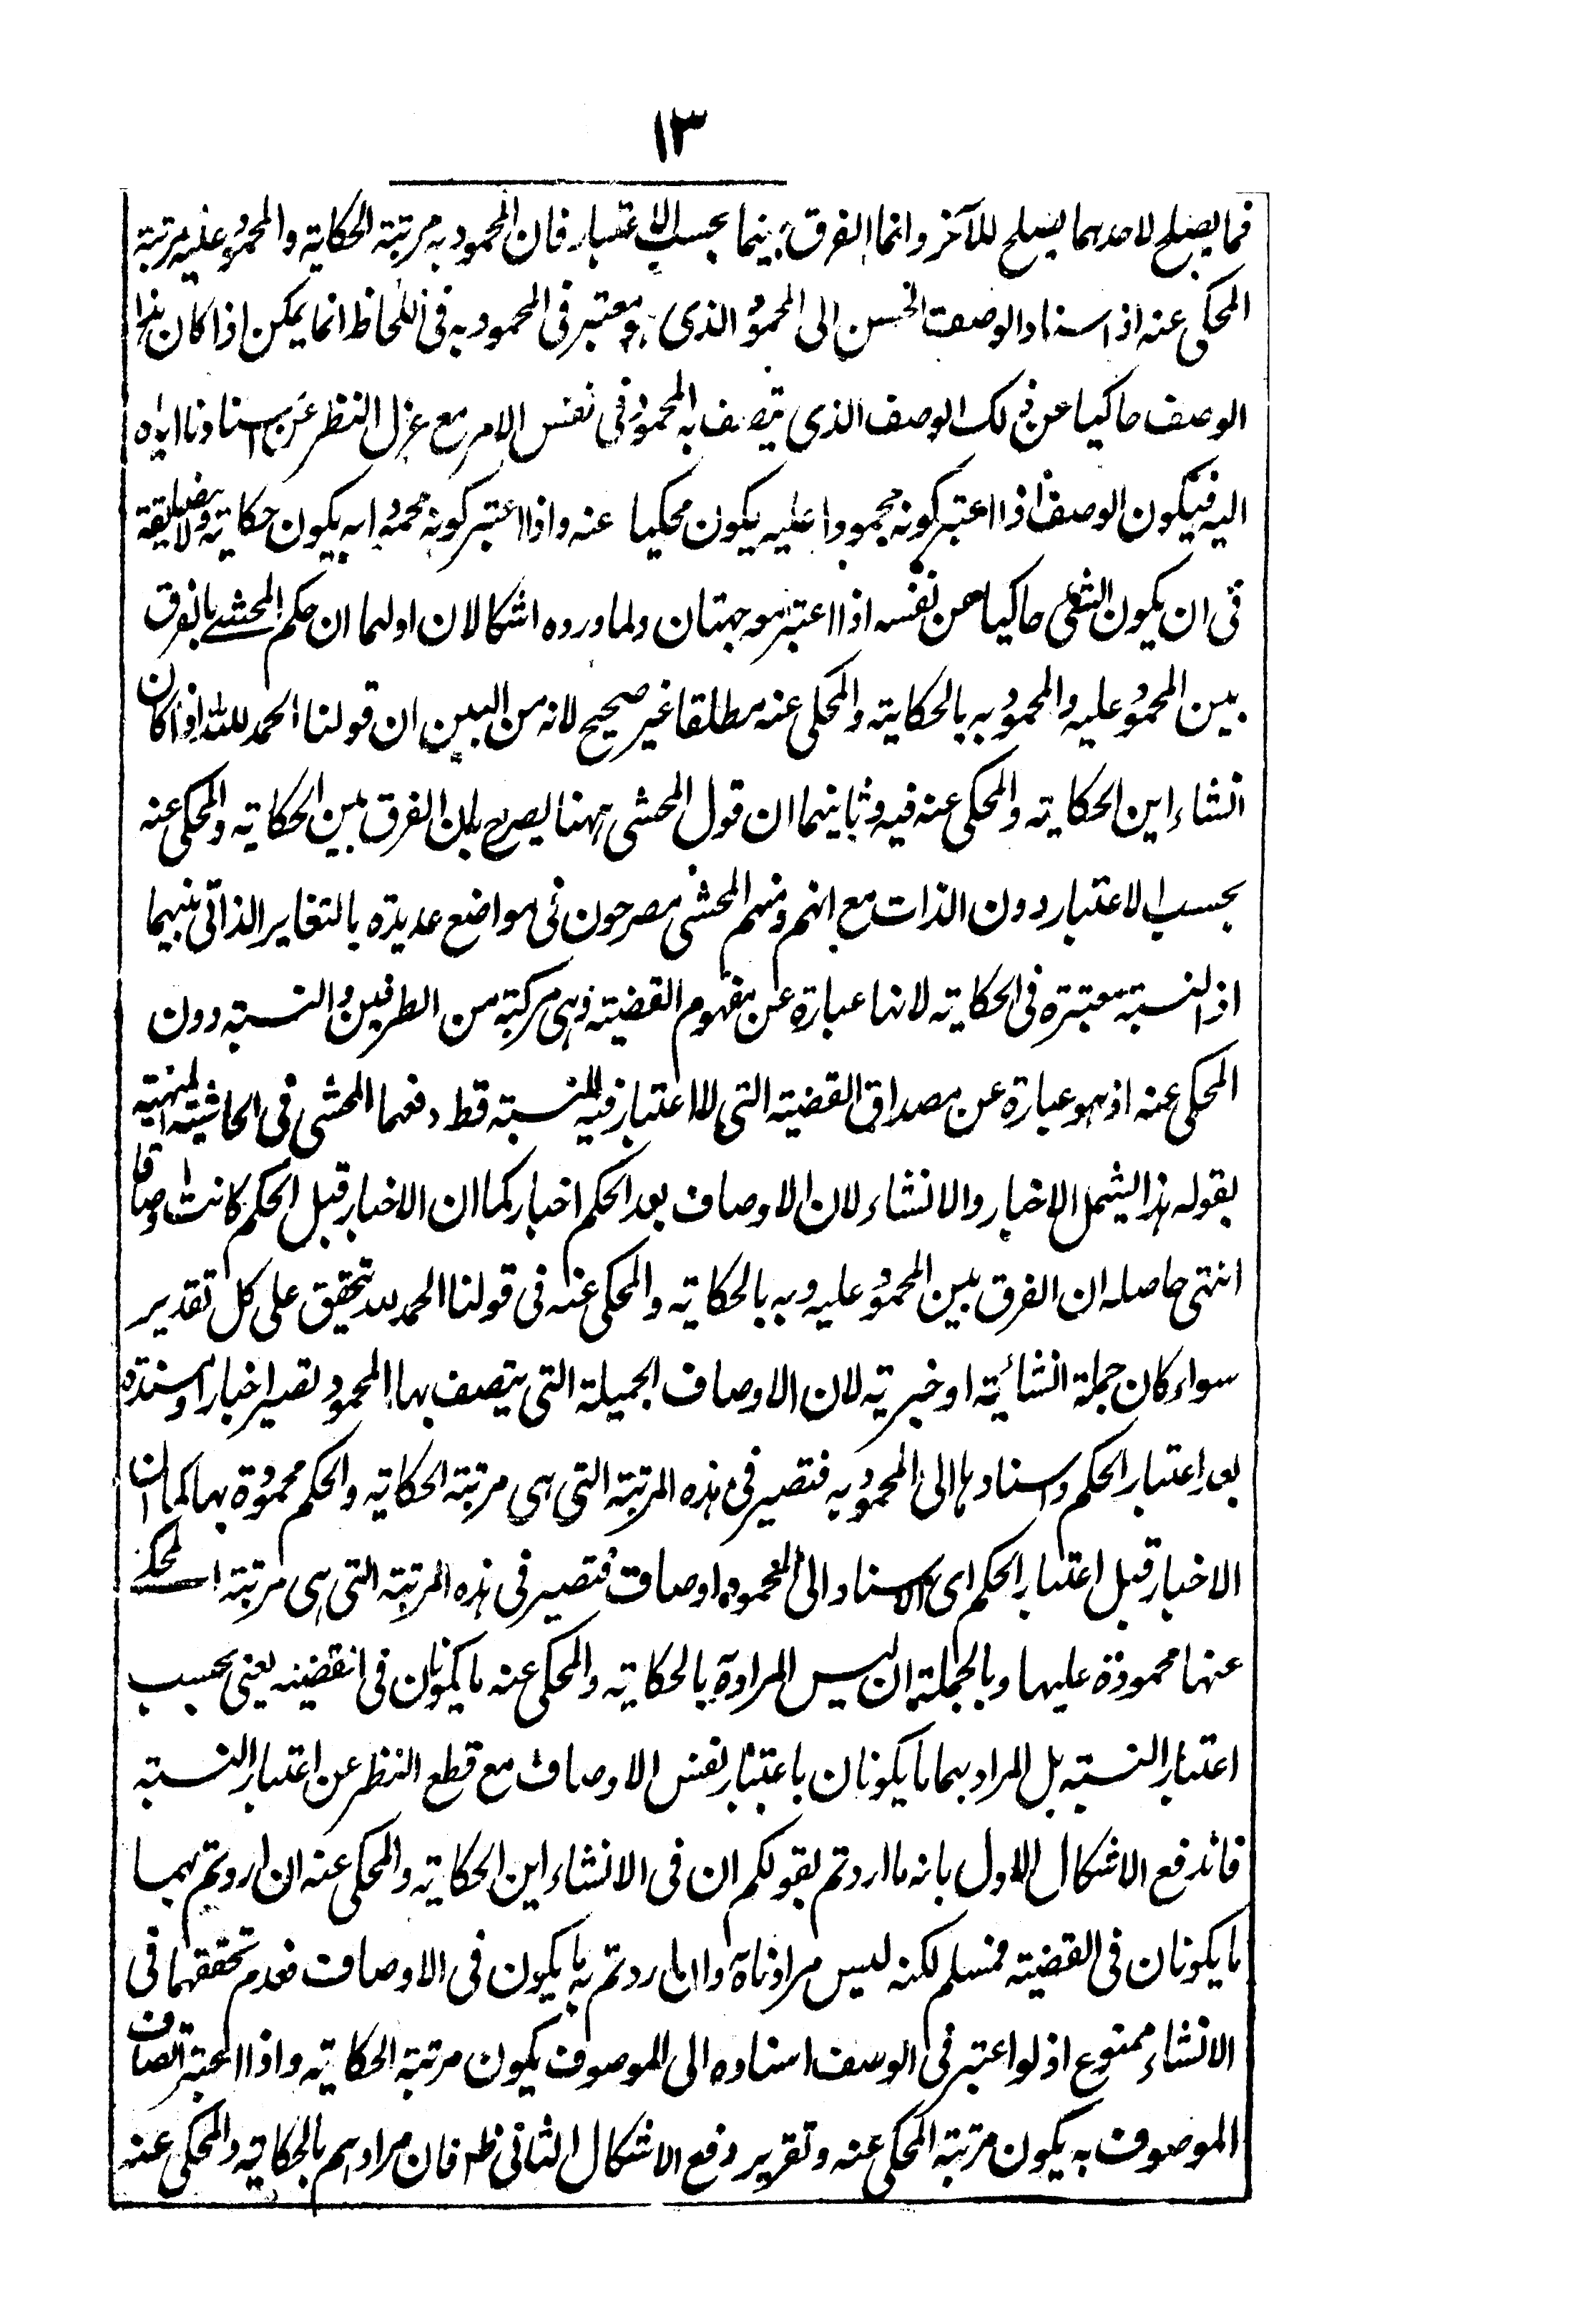 ١٣
فما يصلح لاحدهما يصلح للآخر وانما الفرق بينهما بحسب الاعتبار فان المحمود به مرتبة الحكاية والمحمود عليه مرتبة
المحكى عنه اذ اسناد الوصف الحسن الى المحمود الذى هو معتبر فى المحمود به فى اللحاظ انما يمكن اذا كان هذا
الوصف حاكيا عن ذلك الوصف الذى يتصف به المحمود فى نفس الامر مع عزل النظر عن اسنادنا اياه
اليه فيكون الوصف اذا اعتبر كونه محمودا عليه يكون محكيا عنه واذا اعتبر كونه محمودا به يكون حكاية ولا مضايقة
فى ان يكون الشئ حاكيا عن نفسه اذا اعتبر مو جهتان ولما ورده اشكالان اولهما ان حكم المحشى بالفرق
بين المحمود عليه والمحمود به بالحكاية والمحكى عنه مطلقا غير صحيح لانه من البين ان قولنا الحمد لله اذا كان
انشاء اين الحكاية والمحكى عنه فيه وثانيهما ان قول المحشى ههنا يصرح بان الفرق بين الحكاية والمحكى عنه
بحسب الاعتبار دون الذات مع انهم ومنهم المحشى مصرحون فى مواضع عديدة بالتغاير الذاتى بينهما
اذ النسبة معتبرة فى الحكاية لانها عبارة عن مفهوم القضية وهى مركبة من الطرفين والنسبة دون
المحكى عنه اذ هو عبارة عن مصداق القضية التى لا اعتبار فيه للنسبة قط دفعهما المحشى فى الحاشية المنهية
بقوله هذا يشمل الاخبار والانشاء لان الاوصاف بعد الحكم اخبار كما ان الاخبار قبل الحكم كانت اوصافا
انتهى حاصله ان الفرق بين المحمود عليه وبه بالحكاية والمحكى عنه فى قولنا الحمد لله تحقيق على كل تقدير
سواء كان جملة انشائية او خبرية لان الاوصاف الجميلة التى يتصف بها المحمود تصير اخبارا ومسندة
بعد اعتبار الحكم واسنادها الى المحمود به فتصير فى هذه المرتبة التى هى مرتبة الحكاية والحكم محمودة بها كما ان
الاخبار قبل اعتبار الحكم اى الاسناد الى المحمود اوصاف فتصير فى هذه المرتبة التى هى مرتبة المحكى
عنها محمودة عليها وبالجملة ان ليس المراد بالحكاية والمحكى عنه ما يكونان فى القضية يعنى بحسب
اعتبار النسبة بل المراد بهما ما يكونان باعتبار نفس الاوصاف مع قطع النظر عن اعتبار النسبة
فاندفع الاشكال الاول بانه ما اردتم بقولكم ان فى الانشاء اين الحكاية والمحكى عنه ان اردتم بهما
ما يكونان فى القضية فمسلم لكنه ليس مرادناه وان اردتم به ما يكون فى الاوصاف فعدم تحققهما فى
الانشاء ممنوع اذ لو اعتبر فى الوصف اسناده الى الموصوف يكون مرتبة الحكاية واذا اعتبر اتصاف
الموصوف به يكون مرتبة المحكى عنه وتقرير دفع الاشكال الثانى ظ فان مرادهم بالحكاية والمحكى عنه